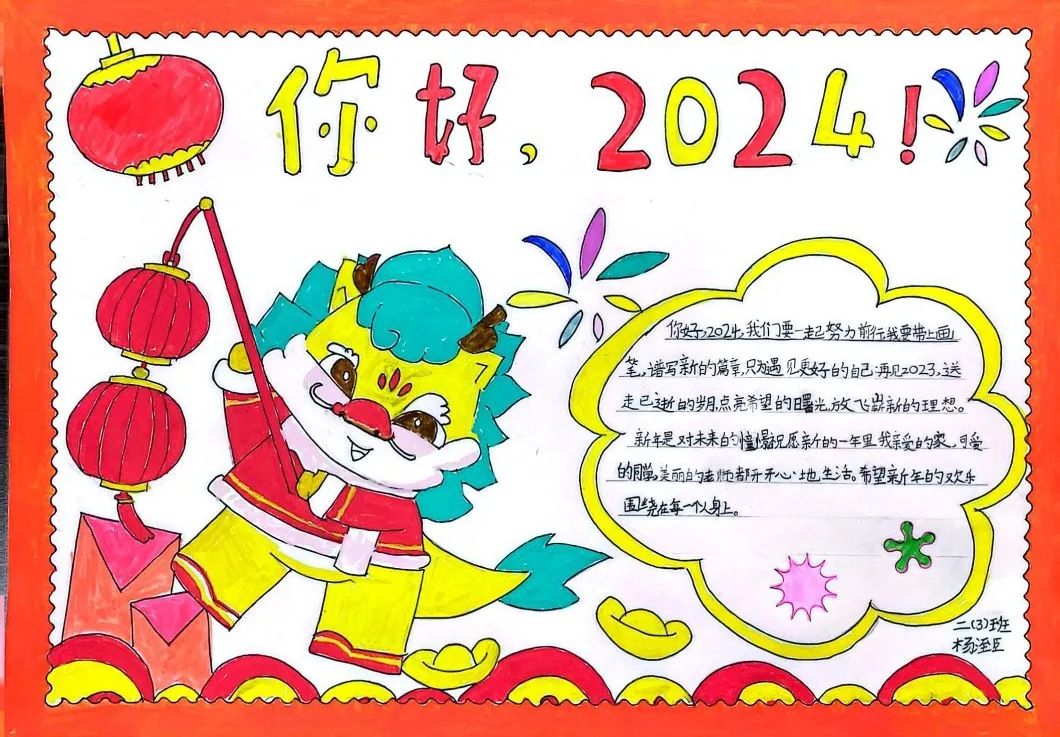 你好,2024!
你好,2024,我们要一起努力前行,我要带上画
笔,谱写新的篇章,只为遇见更好的自己.再见2023,送
走已逝的岁月,点亮希望的曙光,放飞崭新的理想。
新年是对未来的憧憬,祝愿新的一年里,我亲爱的家,可爱
的同学,美丽的老师都开开心心地生活。希望新年的欢乐
围绕在每一个人身上。
二(3)班
杨